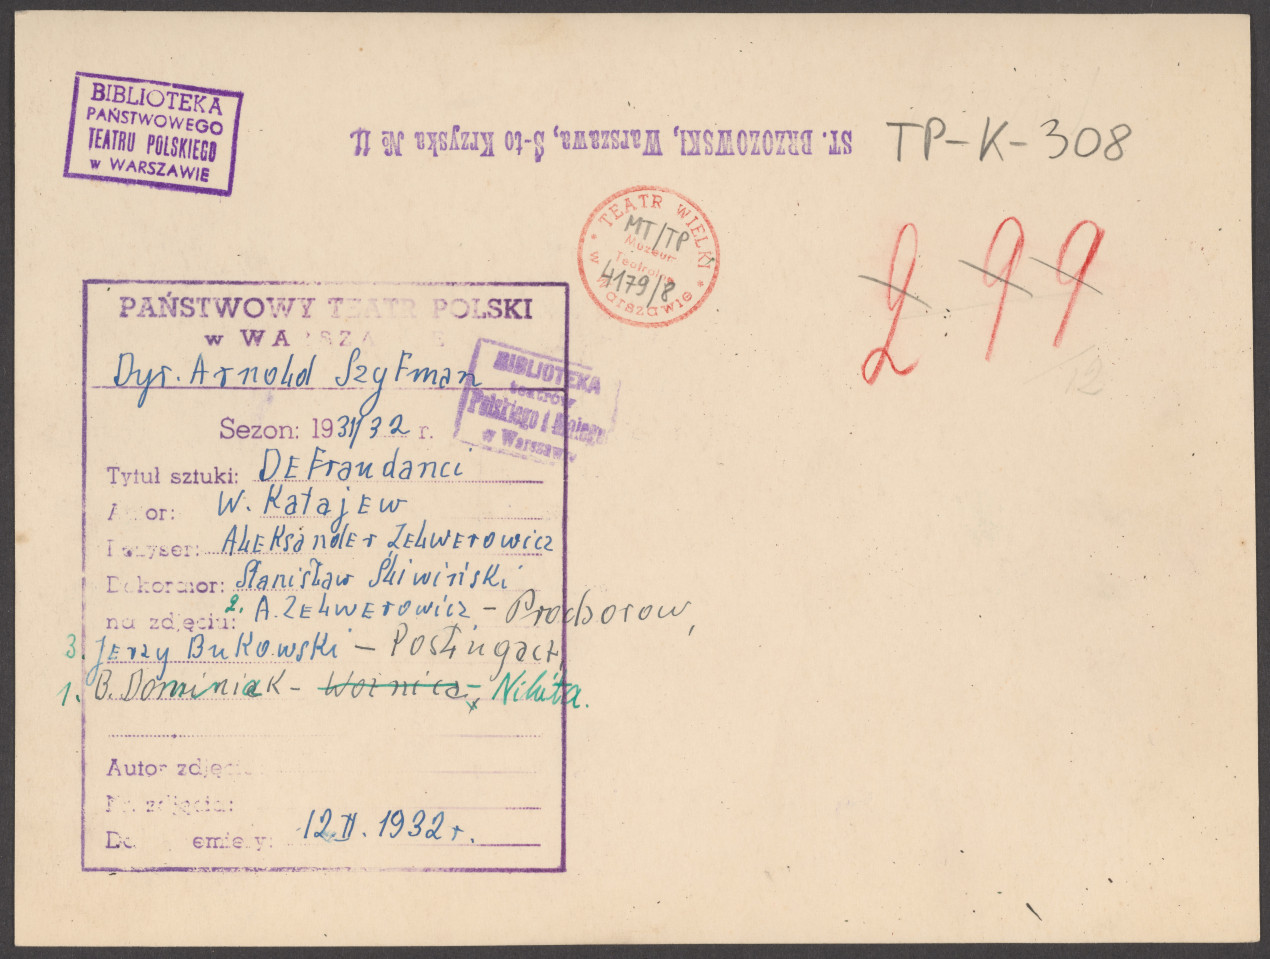 BIBLIOTEKA
PAŃSTWOWEGO
TEATRU POLSKIEGO
w WARSZAWIE
ST. BRZOZOWSKI, Warszawa, Ś-to Krzyska № 11
TP-K-308
* TEATR WIELKI *
w Warszawie
Muzeum
Teatralne
MT/TP
4179/8
2.99
12
PAŃSTWOWY TEATR POLSKI
w WARSZAWIE
Dyr. Arnold Szyfman
BIBLIOTEKA
teatrów
Polskiego i Małego
w Warszawie
Sezon: 1931/32 r.
Tytuł sztuki: Defraudanci
Autor: W. Katajew
Reżyser: Aleksander Zelwerowicz
Dekorator: Stanisław Śliwiński
na zdjęciu: 2. A. Zelwerowicz - Prochorow,
3 Jerzy Bukowski - Posługacz,
1. B. Dominiak - Woźnica - Nikita.
Autor zdjęcia
Nr. zdjęcia:
Data premiery: 12 II. 1932 r.